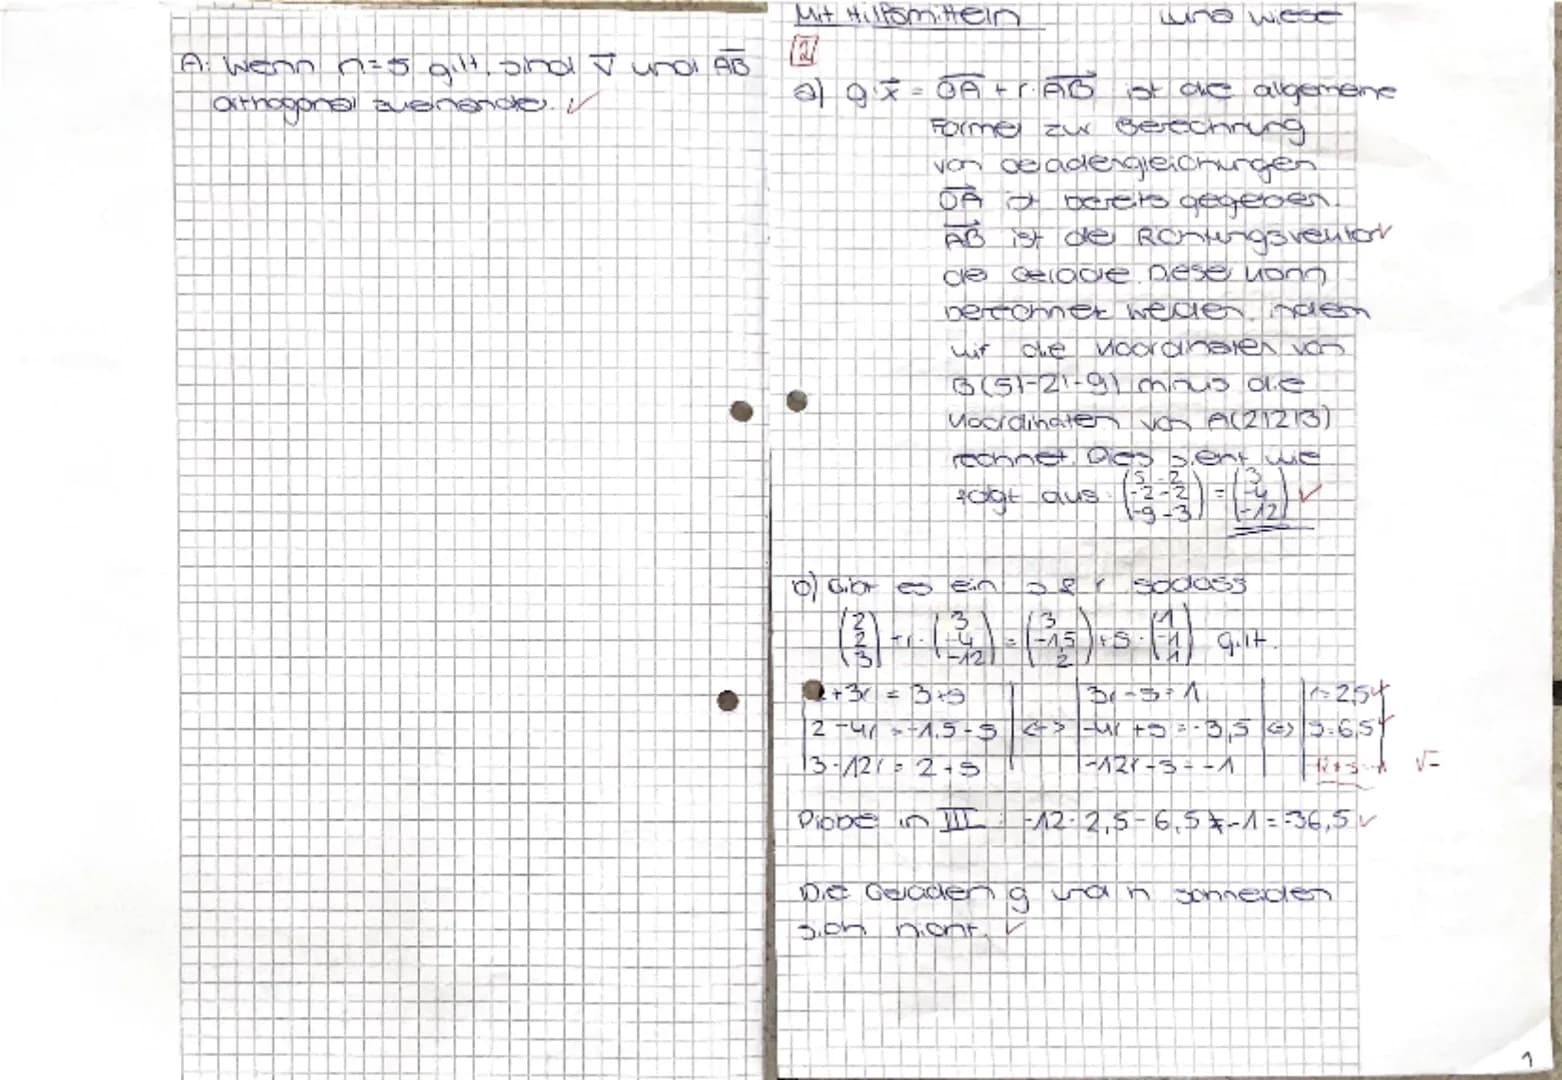 A: Wenn n=5 gilt, sind v⃗ und AB
orthogonal zueinander. ✓
Mit Hilfsmitteln
Wiese
2
a) g: x⃗ = OA + r · AB ist die allgemeine
Formel zur Berechnung
von Geradengleichungen
OA ist bereits gegeben.
AB ist der Richtungsvektor ✓
der Gerade. Dieser kann
berechnet werden, indem
wir die Koordinaten von
B(5|-2|-9) minus die
Koordinaten von A(2|2|3)
rechnet. Dies sieht wie
folgt aus: (5 -2 / -2 -2 / -9 -3) = (3 / -4 / -12) ✓
b) Gibt es ein s & r, sodass
(2 / 2 / 3) + r · (3 / -4 / -12) = (3 / -1,5 / 2) + s · (1 / -1 / 1) gilt.
2+3r = 3+s | 3r-s = 1 | r=2,5 ✓
2-4r = -1,5-s <=> -4r+s = -3,5 <=> s=6,5 ✓
3-12r = 2+s | -12r-s = -1 | √-
Probe in III: -12 · 2,5 - 6,5 ≠ -1 = -36,5 ✓
Die Geraden g und h schneiden
sich nicht. ✓
1